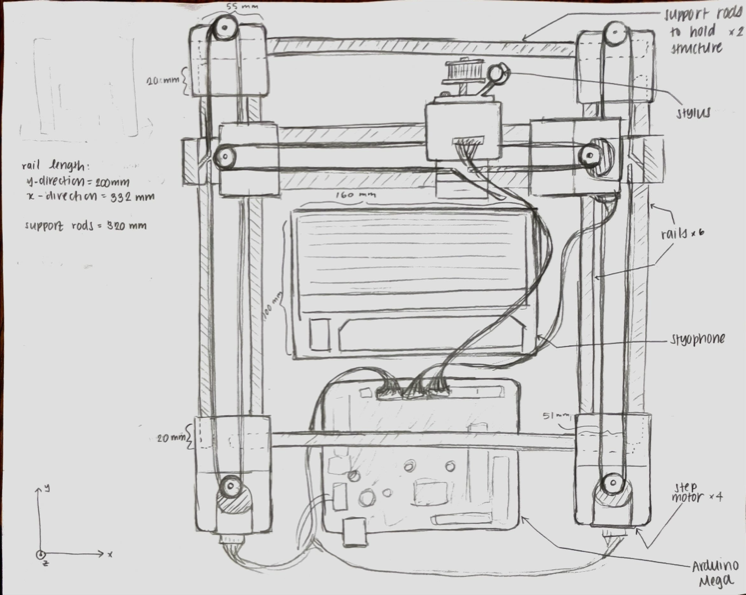 55 mm
support rods
to hold ×2
structure
20 mm
stylus
rail length:
y-direction = 200mm
x-direction = 332 mm
support rods = 320 mm
160 mm
rails × 6
100 mm
stylophone
51 mm
20 mm
step
motor ×4
y
z
x
Arduino
Mega